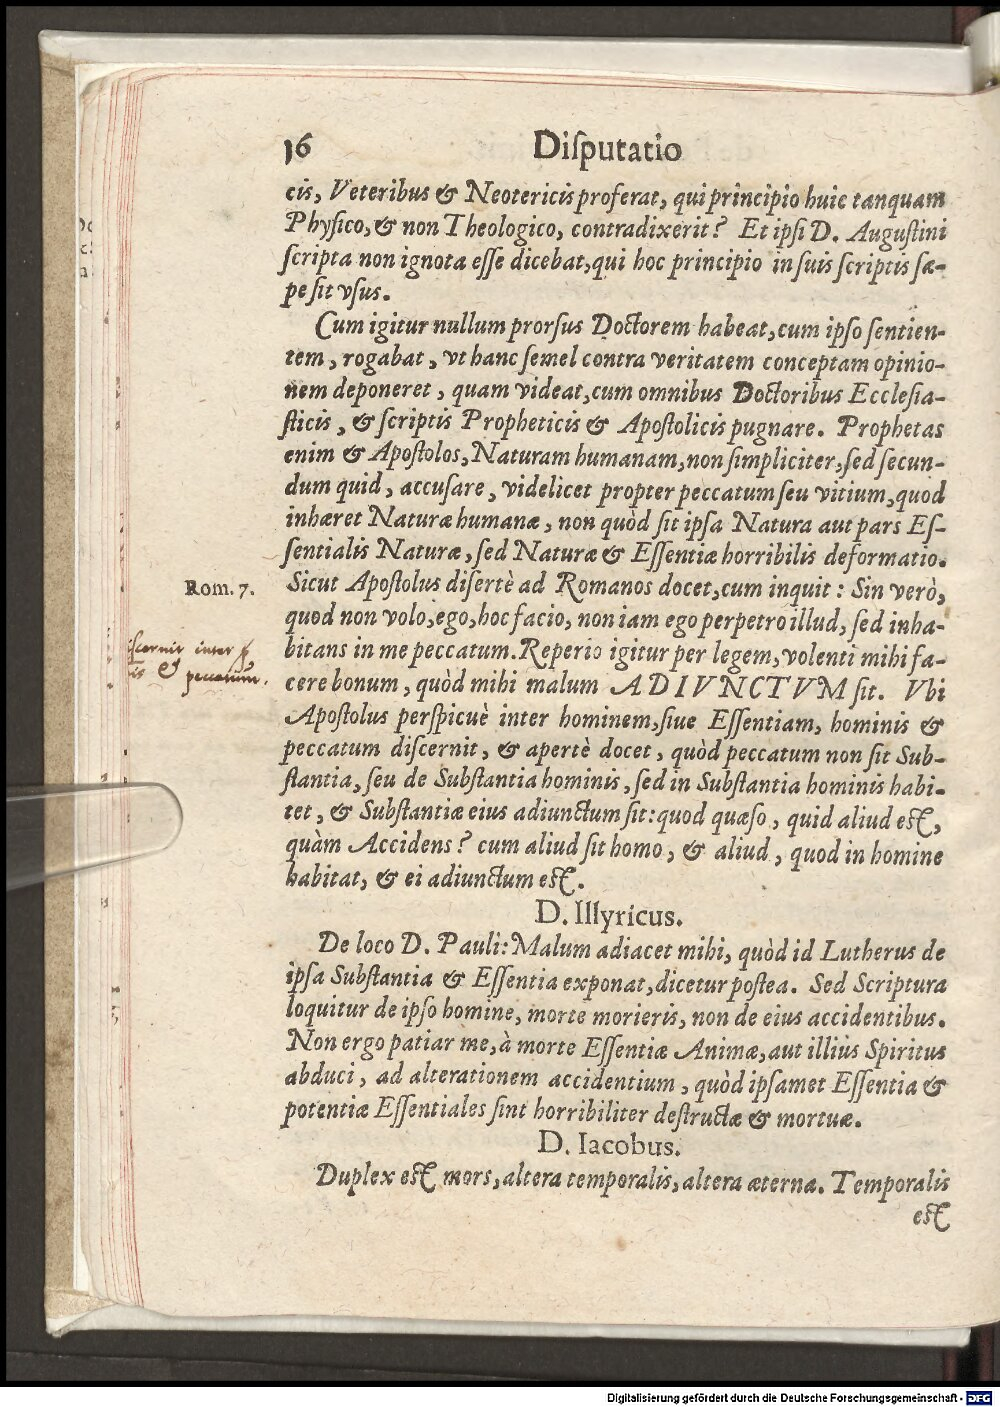 16 Diſputatio
cis, Veteribus & Neotericis proferat, qui principio huic tanquam
Phyſico, & non Theologico, contradixerit? Et ipſi D. Auguſtini
ſcripta non ignota eſſe dicebat, qui hoc principio in ſuis ſcriptis ſæ-
pe ſit vſus.
Cum igitur nullum prorſus Doctorem habeat, cum ipſo ſentien-
tem, rogabat, vt hanc ſemel contra veritatem conceptam opinio-
nem deponeret, quam videat, cum omnibus Doctoribus Eccleſia-
ſticis, & ſcriptis Propheticis & Apoſtolicis pugnare. Prophetas
enim & Apoſtolos, Naturam humanam, non ſimpliciter, ſed ſecun-
dum quid, accuſare, videlicet propter peccatum ſeu vitium, quod
inhæret Naturæ humanæ, non quòd ſit ipſa Natura aut pars Eſ-
ſentialis Naturæ, ſed Naturæ & Eſſentiæ horribilis deformatio.
Rom. 7. Sicut Apoſtolus diſertè ad Romanos docet, cum inquit: Sin verò,
quod non volo, ego, hoc facio, non iam ego perpetro illud, ſed inha-
bitans in me peccatum. Reperio igitur per legem, volenti mihi fa-
cere bonum, quòd mihi malum ADIVNCTVM ſit. Vbi
Apoſtolus perſpicuè inter hominem, ſiue Eſſentiam, hominis &
peccatum diſcernit, & apertè docet, quòd peccatum non ſit Sub-
ſtantia, ſeu de Subſtantia hominis, ſed in Subſtantia hominis habi-
tet, & Subſtantiæ eius adiunctum ſit: quod quæſo, quid aliud eſt,
quàm Accidens? cum aliud ſit homo, & aliud, quod in homine
habitat, & ei adiunctum eſt.
D. Illyricus.
De loco D. Pauli: Malum adiacet mihi, quòd id Lutherus de
ipſa Subſtantia & Eſſentia exponat, dicetur poſtea. Sed Scriptura
loquitur de ipſo homine, morte morieris, non de eius accidentibus.
Non ergo patiar me, à morte Eſſentiæ Animæ, aut illius Spiritus
abduci, ad alterationem accidentium, quòd ipſamet Eſſentia &
potentiæ Eſſentiales ſint horribiliter deſtructæ & mortuæ.
D. Iacobus.
Duplex eſt mors, altera temporalis, altera æterna. Temporalis
eſt
inter
&
peccatum.
Digitalisierung gefördert durch die Deutsche Forschungsgemeinschaft - DFG